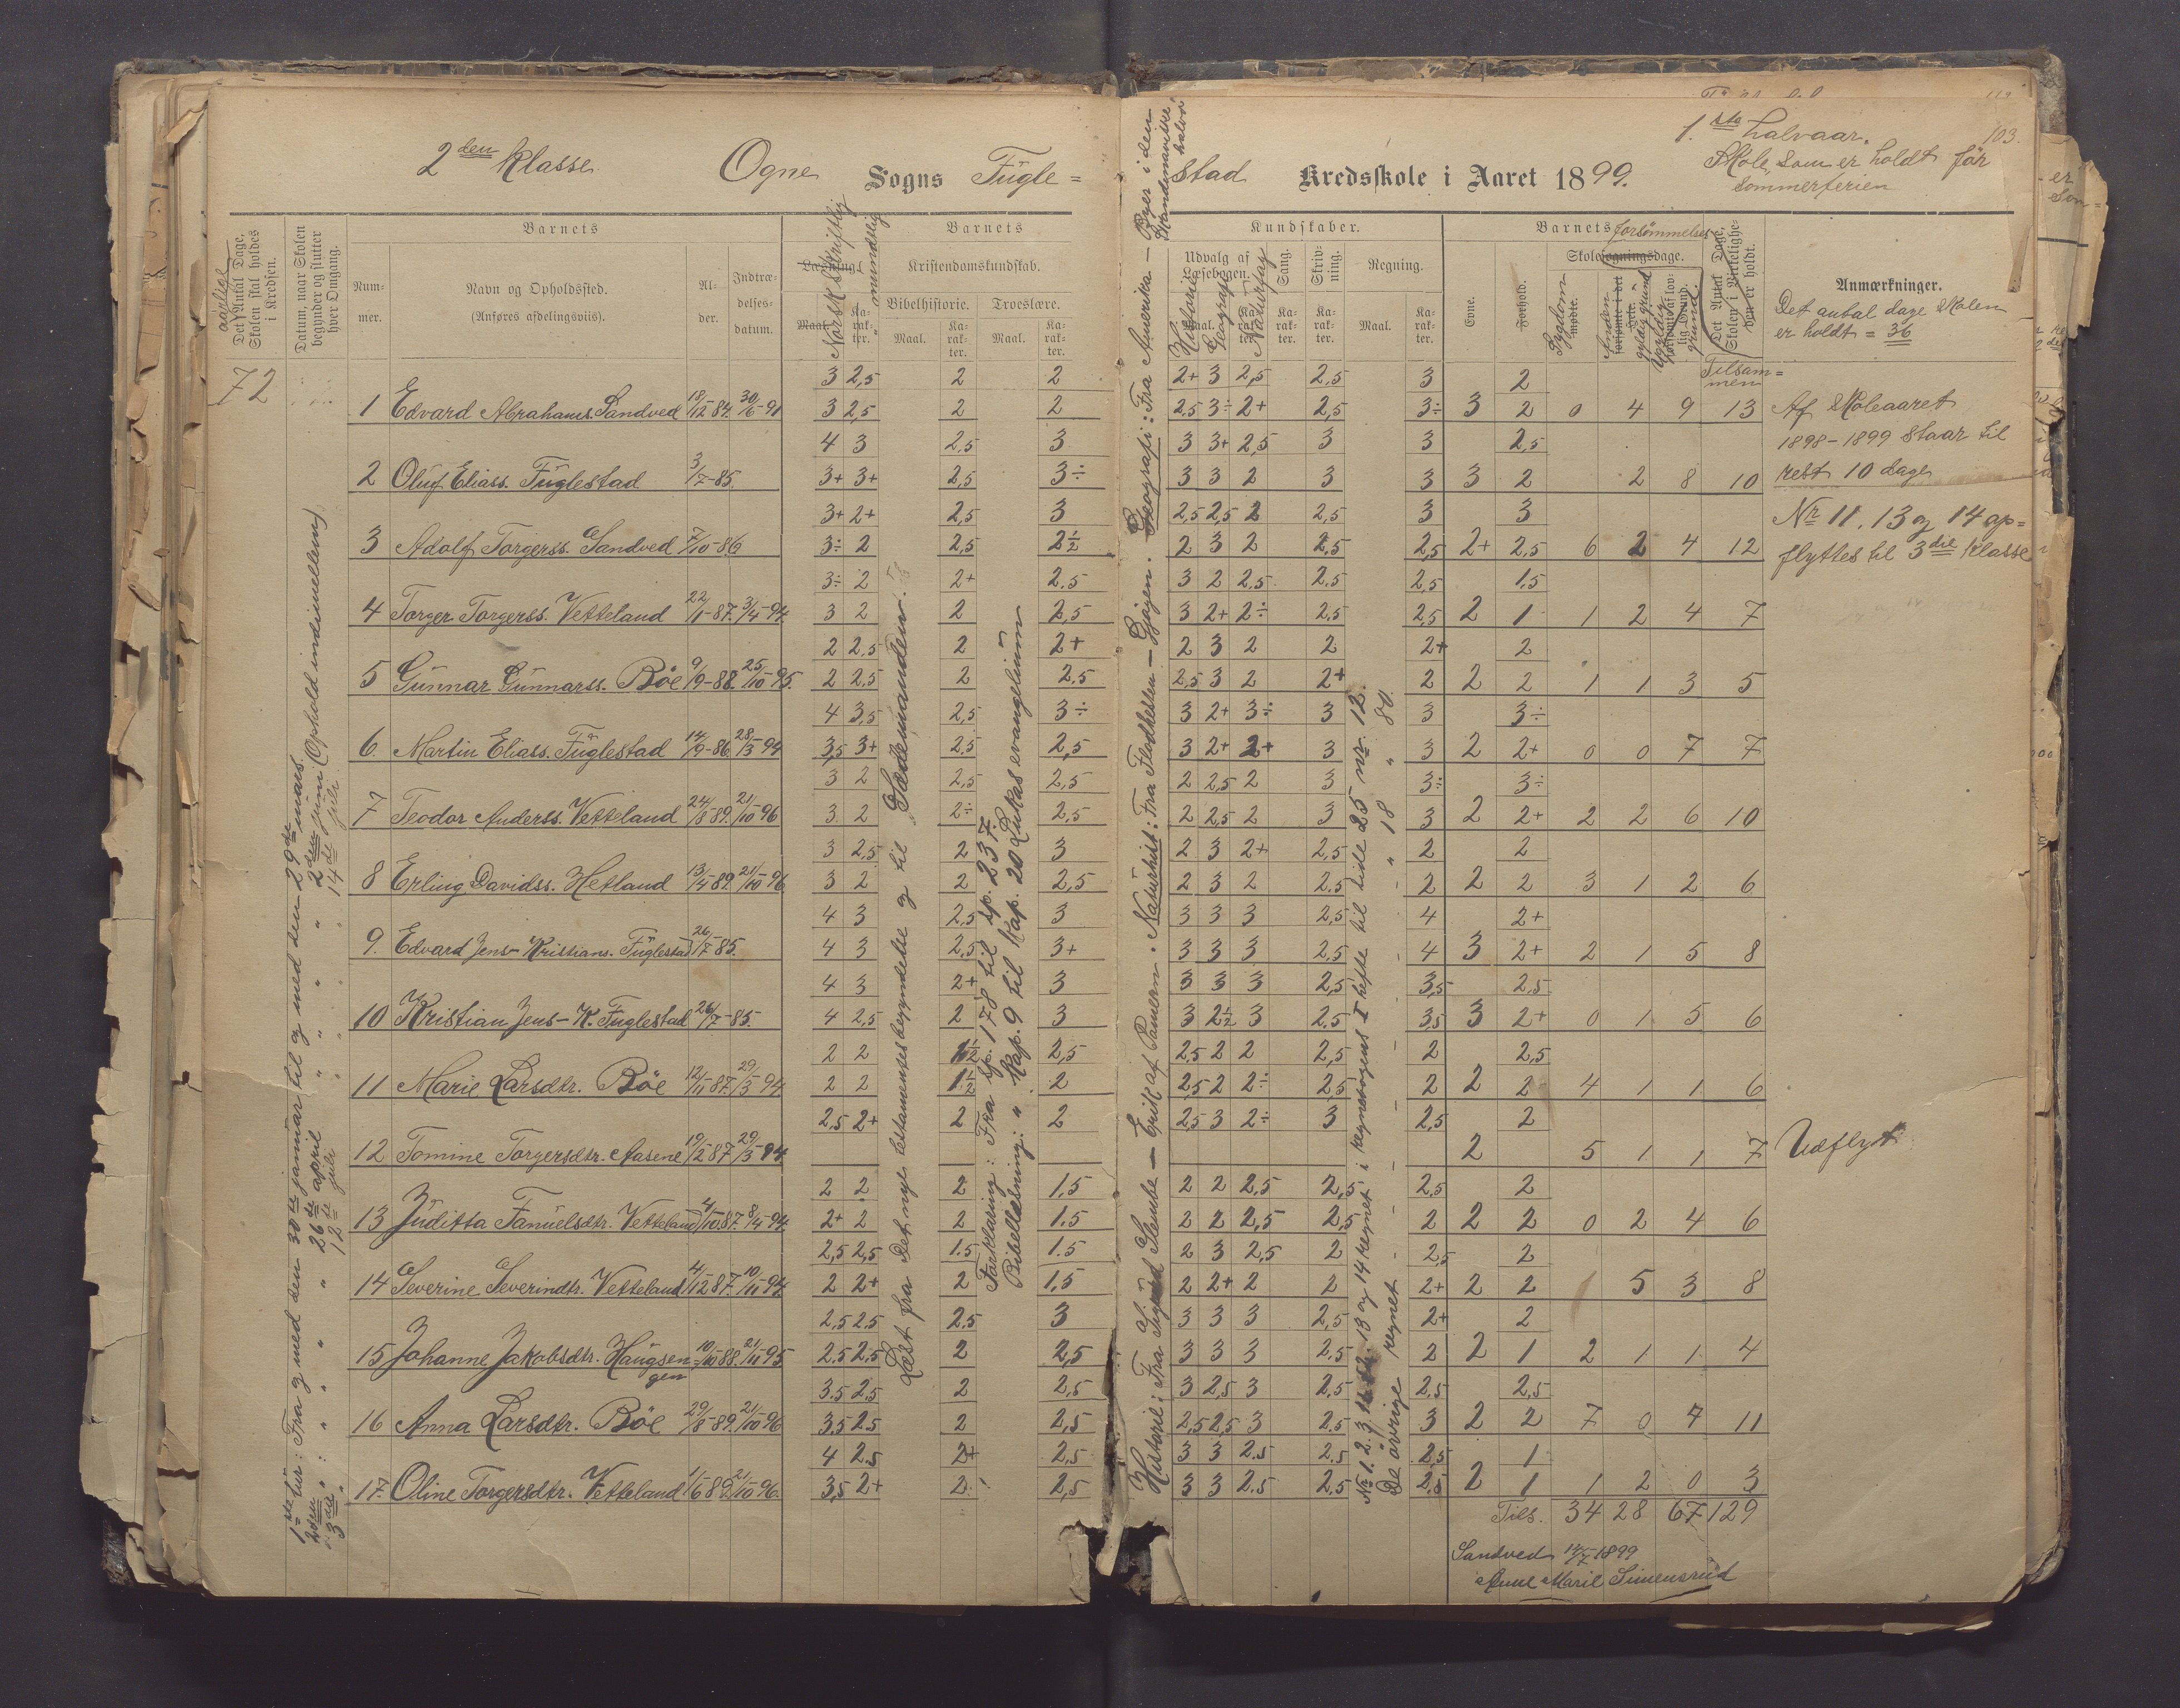 2den Klasse Ogne Sogns Fügle=
stad Kredsskole i Aaret 1899.
1.ste halvaar. 103.
Skole, som er holdt før
sommerferien
aarlige
Det Antal Dage, Skolen skal holdes i Kredsen.
Datum, naar Skolen begynder og slutter hver Omgang.
Barnets
Num-mer.
Navn og Opholdssted.
(Anføres afdelingsviis).
Al-der.
Indtræ-delses-datum.
Barnets
Læsning.
Norsk skriftlig
" mundtlig
Maal. Ka-rak-ter.
Kristendomskundskab.
Bibelhistorie. Troeslære.
Maal. Ka-rak-ter. Maal. Ka-rak-ter.
Kundskaber.
Udvalg af Læsebogen. Sang. Skriv-ning. Regning.
Historie Geografi Naturfag
Ka-rak-ter. Ka-rak-ter. Maal. Ka-rak-ter.
Barnets forsømmelser
Evne. Forhold.
Skolesøgningsdage.
Sygdom
mødte.
Anden gyldig grund
Ugyldig grund.
Det Antal Dage, Skolen i Virkelighe-den er holdt.
Tilsam=
men
Anmærkninger.
Det antal dage skolen
er holdt = 36
72
3 2,5 2 2 2+ 3 2,5 2,5 3 2
1 Edvard Abrahams. Sandved 18/12-84. 30/6-91 3 2,5 2 2 2,5 3÷ 2+ 2,5 3÷ 3 2 0 4 9 13 Af Skoleaaret
4 3 2,5 3 3 3+ 2,5 3 3 2,5 1898-1899 staar til
2 Oluf Eliass. Füglestad 3/7-85. 3+ 3+ 2,5 3÷ 3 3 2 3 3 3 2 2 8 10 rest 10 dage
3+ 2+ 2,5 3 2,5 2,5 2 2,5 3 3 Nr 11, 13 og 14 op=
3 Adolf Torgerss. Sandved 7/10-86 3÷ 2 2,5 2½ 2 3 2 2,5 2,5 2+ 2,5 6 2 4 12 flyttes til 3die klasse
3÷ 2 2+ 2.5 3 2 2,5 2.5 2,5 1.5
4 Torger Torgerss. Vetteland 22/1-87. 3/4-94. 3 2 2 2,5 3 2+ 2÷ 2,5 2,5 2 1 1 2 4 7
2 2,5 2 2+ 2 3 2 2 2+ 2
5 Günnar Günnarss. Böe 9/9-88. 25/10-95. 2 2,5 2 2.5 2,5 3 2 2+ 2 2 2 1 1 3 5
4 3,5 2,5 3÷ 3 2+ 3÷ 3 3 3÷
6 Martin Eliass. Füglestad 14/9-86 28/3-94 3,5 3+ 2,5 2,5 3 2+ 2+ 3 3 2 2+ 0 0 7 7
3 2 2,5 2,5 2 2,5 2 3 3÷ 3÷
7 Teodor Anderss. Vetteland 24/8-89. 21/10-96 3 2 2÷ 2,5 2 2,5 2 3 3 2 2+ 2 2 6 10
3 2,5 2 3 2 3 2+ 2,5 2 2
8 Erling Davidss. Hetland 13/4-89. 21/10-96 3 2 2 2,5 2 3 2 2,5 2 2 2 3 1 2 6
4 3 2,5 3 3 3 3 2,5 4 2+
9. Edvard Jens-Kristians. Füglestad 26/7-85. 4 3 2,5 3+ 3 3 3 2,5 4 3 2+ 2 1 5 8
4 3 2+ 3 3 3 3 2,5 3,5 2,5
10 Kristian Jens-K. Füglestad 26/7-85. 4 2,5 2 3 3 2½ 3 2.5 3,5 3 2+ 0 1 5 6
2 2 1½ 2,5 2,5 2 2 2,5 2 2,5
11 Marie Larsdtr. Böe 12/11-87. 29/3-94. 2 2 1½ 2 2,5 2 2÷ 2,5 2 2 2 4 1 1 6
2,5 2+ 2 2 2,5 3 2÷ 3 2,5 2
12 Tomine Torgersdtr. Aasene 19/2-87 29/3-94. 2 5 1 1 7 Udflyt
2 2 2 1,5 2 2 2,5 2,5 2,5 2
13 Jüditta Fanuelsdtr. Vetteland 4/10-87. 8/4-94. 2+ 2 2 1.5 2 2 2,5 2,5 2 2 2 0 2 4 6
2,5 2,5 1.5 1.5 2 3 2,5 2 2,5 2
14 Severine Severindtr. Vetteland 4/12-87. 10/11-94. 2 2+ 2 1,5 2 2+ 2 2 2+ 2 2 5 3 8
2,5 2,5 2.5 3 3 3 3 2,5 2+ 2
15 Johanne Jakobsdtr. Haugsen= 10/10-88. 21/11-95 2,5 2,5 2 2,5 3 3 3 2.5 2 2 1 2 1 1 4
gen
3.5 2.5 2 2,5 3 2,5 3 2,5 2,5 2,5
16 Anna Larsdtr. Böe 29/8-89. 21/10-96 3,5 2.5 2 2,5 2,5 2,5 3 2.5 3 2 2 7 0 4 11
4 2.5 2+ 2,5 3 3 2.5 2.5 2,5 1
17. Oline Torgersdtr. Vetteland 1/6-89 21/10-96. 3,5 2+ 2 2,5 3 3 2.5 2.5 2,5 2 1 1 2 0 3
Tils. 34 28 67 129
Sandved 14/7-1899
Anne Marie Simensrud
1ste tur: Fra og med den 30te januar til og med den 29de mars.
2den " : " " " " 26de april " " " " 2den juni (Ophold indimellem)
3die " : " " " " 12te juli " " " " 14de juli
Læst fra Det nye testamentes begyndelse og til „Sædemanden".
Forklaring: Fra sp. 178 til sp. 237.
Bibellæsning: " Kap. 9 til Kap. 20 Lukas evangelium
Historie: Fra Sigurd Slembe — Erik af Pomern. Naturhist: Fra Flodhesten — Gjøgen. Geografi: Fra Amerika — Byer i den
Skandinaviske
halvø
Nr 1. 2. 3. 13 og 14 regnet i regnebogens I hefte til side 25 nr. 12.
De øvrige regnet - - - - - " 18 " 80.